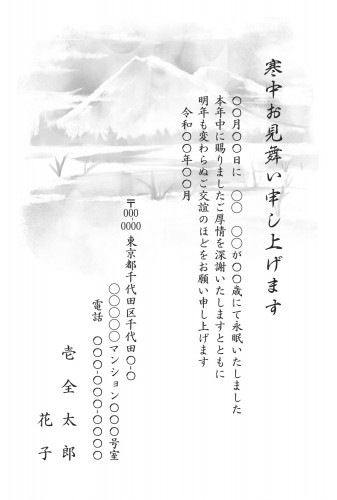 寒中お見舞い申し上げます
〇〇月〇〇日に　〇〇　〇〇が〇〇歳にて永眠いたしました
本年中に賜りましたご厚情を深謝いたしますとともに
明年も変わらぬご交誼のほどをお願い申し上げます
令和〇〇年〇〇月
〒000-0000 東京都千代田区千代田〇-〇
〇〇〇〇〇マンション〇〇〇号室
電話　〇〇〇-〇〇〇-〇〇〇〇
壱 全 太 郎
花 子